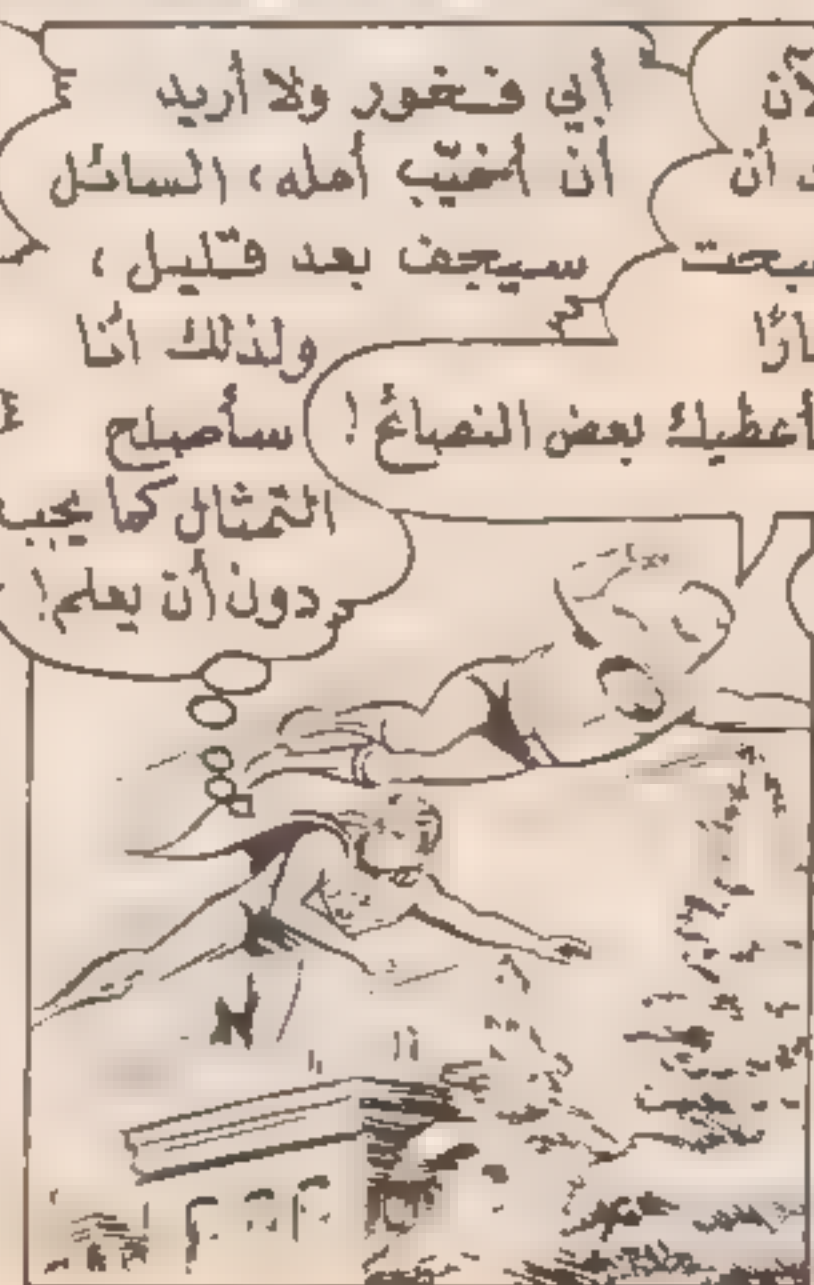 الآن
أن
سبحت
أعطيك بعض النصائح !
أبي فخور ولا أريد
أنْ أخيّب أمله، السائل
سيجف بعد قليل،
ولذلك أنا
سأصلح
التمثال كما يجب
دون أن يعلم !